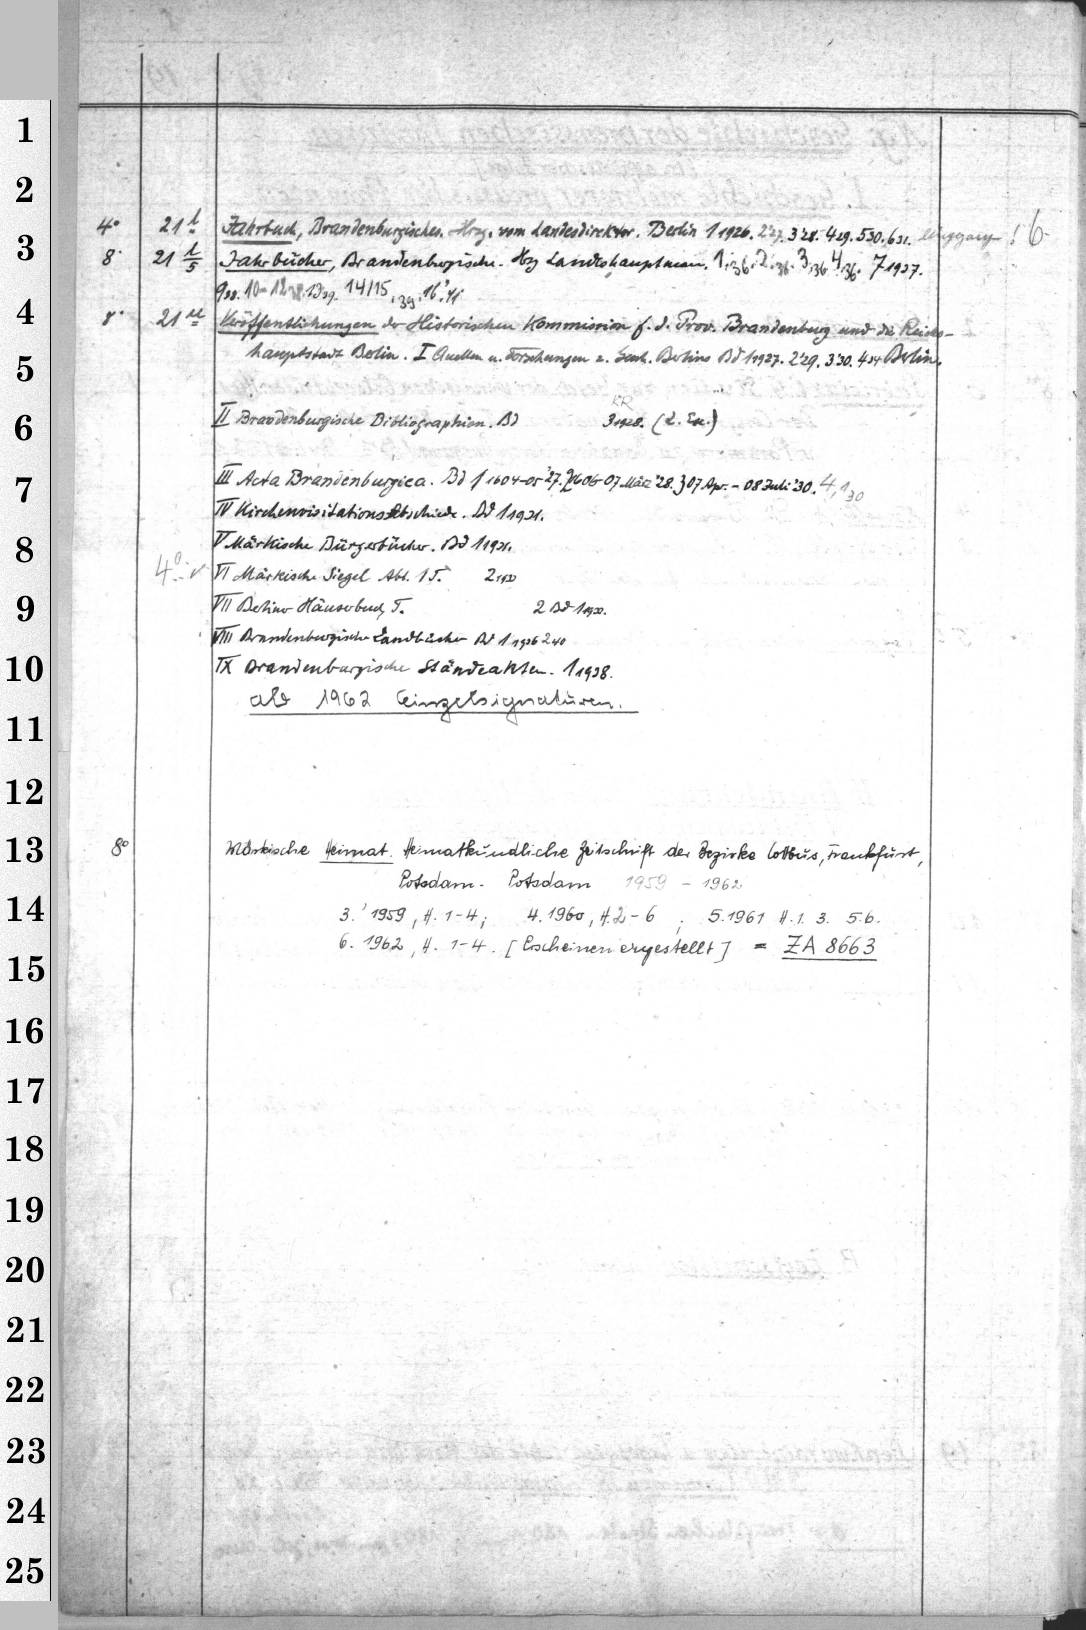 1
2
3
4
5
6
7
8
9
10
11
12
13
14
15
16
17
18
19
20
21
22
23
24
25
4° 21 l Jahrbuch, Brandenburgisches. Hrsg. vom Landesdirektor. Berlin 1 1926. 2 27. 3 28. 4 29. 5 30. 6 31. ! 6
8° 21 l/5 Jahrbücher, Brandenburgische. Hrsg Landeshauptmann. 1.36. 2.36. 3.36 4.36. 7 1937.
9 38. 10-12 38. 13 39. 14/15, 39. 16.'41
8° 21 m Veröffentlichungen der Historischen Kommission f. d. Prov. Brandenburg und die Reichs-
hauptstadt Berlin. I Quellen u. Forschungen z. Gesch. Berlins Bd 1 1927. 2'29. 3'30. 4 34 Berlin.
II Brandenburgische Bibliographien. Bd 3 1928. (2. Ex.)
III Acta Brandenburgica. Bd 1 1604-05 '27. 2 1606-07 März '28. 3 07 Apr. - 08 Juli '30. 4,1 30
IV Kirchenvisitations-Abschiede. Bd 1 1931.
V Märkische Bürgerbücher. Bd 1 1931.
4° VI Märkische Siegel Abt. 1 T. 2
VII Berliner Häuserbuch, T. 2 Bd 1
VIII Brandenburgische Landbücher Bd 1 1936 2 40
IX Brandenburgische Ständeakten. 1 1938.
ab 1962 Einzelsignaturen.
8° Märkische Heimat. Heimatkundliche Zeitschrift der Bezirke Cottbus, Frankfurt,
Potsdam. Potsdam 1959 - 1962
3.' 1959, H. 1-4; 4. 1960, H. 2-6; 5. 1961 H. 1. 3. 5. 6.
6. 1962, H. 1-4. [Erscheinen eingestellt] = ZA 8663